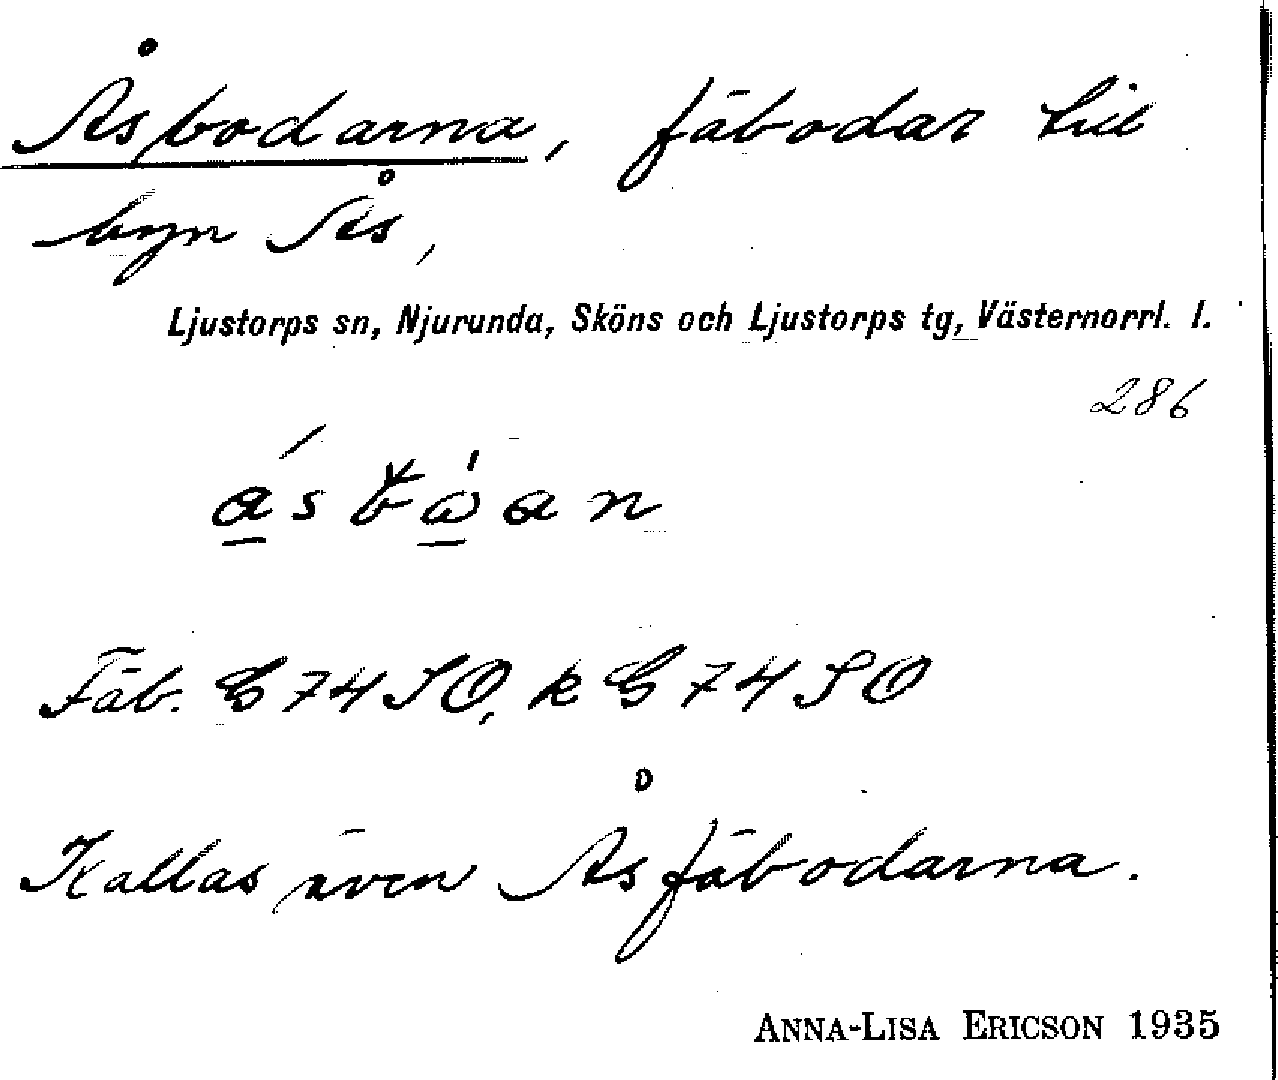 Åsbodarna, fäbodar till
byn Ås,
Ljustorps sn, Njurunda, Sköns och Ljustorps tg, Västernorrl. l.
286
Fäb. G 74 SO, k G 74 SO
Kallas även Åsfäbodarna.
ANNA-LISA ERICSON 1935